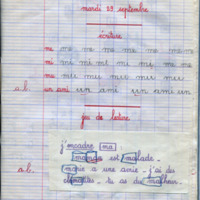 mardi 29 septembre
écriture
me me me me me me me
mi mi mi mi mi mi mi
mu mu mu mu mu mu
a.b. un ami un ami un ami un
jeu de lecture
j'encadre ma
maman est malade -
marie a une amie - j'ai des
a.b. - tu as du malheur -